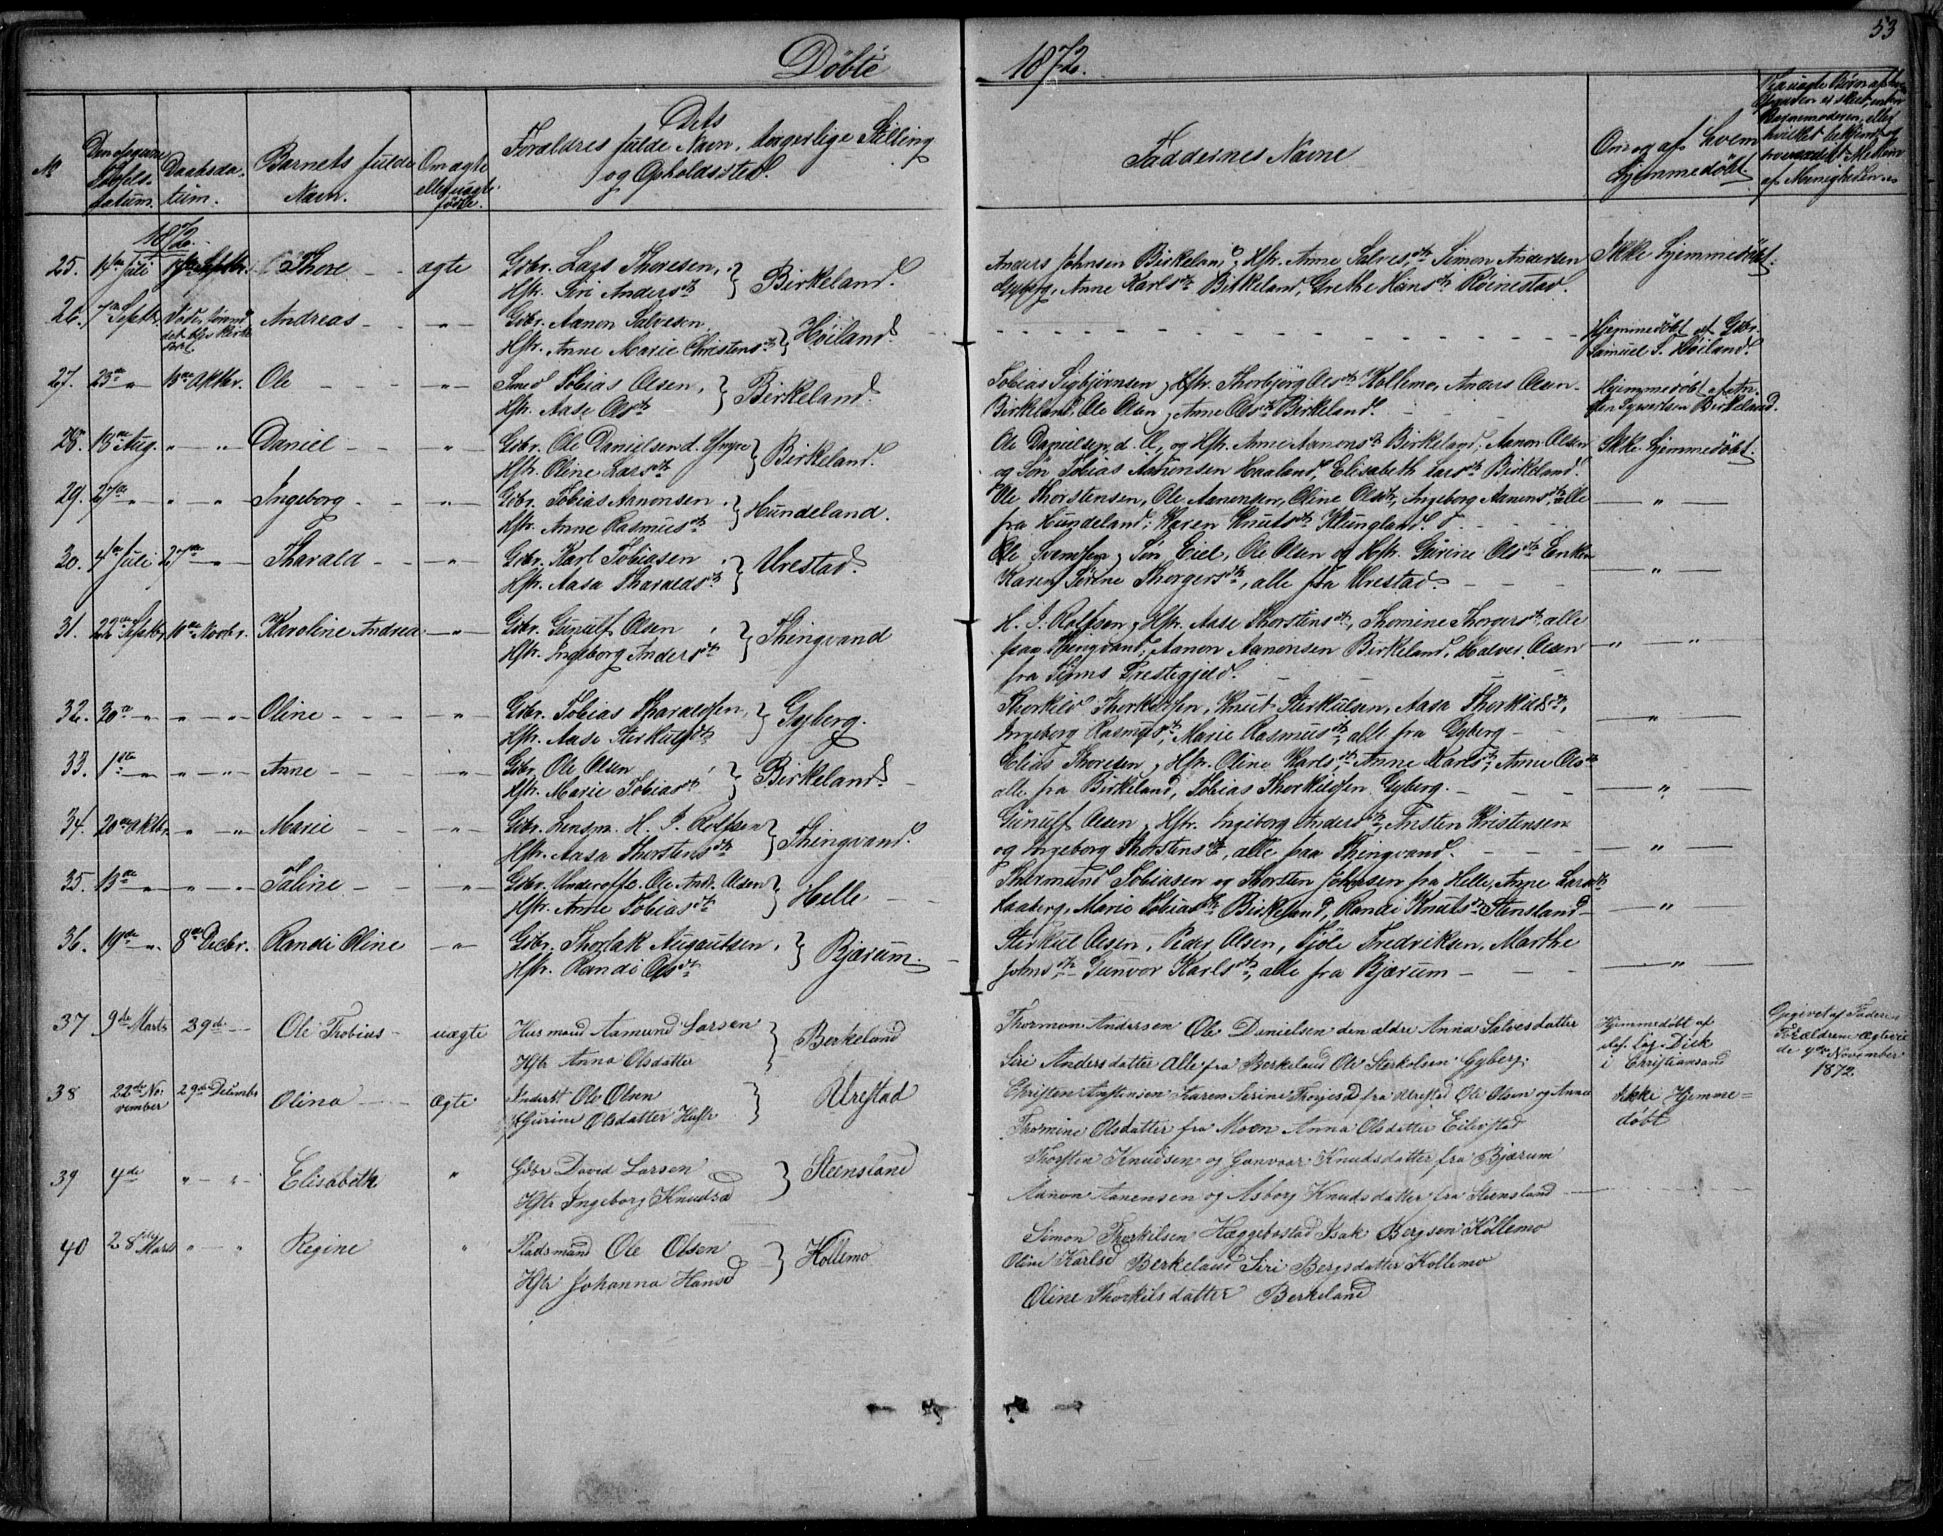 53
Döbte 1872.
№
Den Spædes Fødselsdatum.
Daabsdatum.
Barnets fulde Navn.
Om ægte eller uægte født.
Dets Forældres fulde Navn, borgerlige Stilling og Opholdssted.
Faddernes Navne
Om og af hvem hjemmedöbt.
1872.
25. 14de Juli 19de Septbr. Thore - - ægte Gbr. Lars Thoresen, Hstr. Siri Andersdtr } Birkeland. Anders Johnsen Birkeland, Hstr. Anne Salvesdtr Simon Andersen Gyberg, Anne Karlsdtr Birkeland, Grethe Hansdtr Röinestad. Ikke hjemmedöbt.
26. 7de Septbr. Andreas - - " - Gbr. Aanon Salvesen. Hstr. Anne Marie Christensdtr } Höiland. - - - Hjemmedöbt af Gbr. Samuel S. Höiland.
27. 23de - " - 13de Oktbr. Ole - - - " - Smed Tobias Olsen, Hstr. Aase Olsdtr } Birkeland. Tobias Sigbjörnsen, Hstr. Thorbjörg Olsdtr Kollemo, Anders Olsen Birkeland, Ole Olsen, Anne Olsdtr Birkeland. Hjemmedöbt Birkeland.
28. 13de Aug. " - " Daniel - - - " - Gbr. Ole Danielsen d. Yngre Hstr. Oline Larsdtr } Birkeland. Ole Danielsen d. Æ, og Hstr. Anne Aanonsdtr Birkeland, Aanon Olsen og Sön Tobias Aanonsen Haaland, Elisabeth Larsdtr Birkeland. Ikke hjemmedöbt.
29. 27de " " - " Ingeborg - - " - Gbr. Tobias Aanonsen Hstr. Anne Rasmusdtr } Hundeland. Ole Thorstensen, Ole Aanensen, Oline Olsdtr, Ingeborg Aanonsdtr, alle fra Hundeland; Karen Knutsdtr Klungland. - " -
30. 4de Juli 27de - " Tharald - - " Gbr. Karl Tobiasen Hstr. Aasa Tharaldsdtr } Urestad. Ole Svendsen, Sön Eiel, Ole Olsen og Hstr. Gurine Olsdtr Enken Karen Sörine Thorgersdtr, alle fra Urestad - " -
31. 22de Septbr. 10de Novbr. Karoline Andrea - " - Gbr. Gunulf Olsen Hstr. Ingeborg Andersdtr } Thingvand H. J. Rolfsen, Hstr. Aase Thorstensdtr, Thomine Thorersdtr alle fra Thingvand, Aanon Aanonsen Birkeland, Halvor Olsen fra Præstegjeld. " - "
32. 30de - " - " - " Oline - - - " - Gbr. Tobias Tharaldsen, Hstr. Aase Sterkulfsdtr } Gyberg. Thorkild Thorkildsen, Knut Sterkulsen, Aasa Thorkildsdtr, Ingeborg Rasmusdtr, Marie Rasmusdtr, alle fra Gyberg - - " -
33. 1ste - " - " - " Anne - - - " Gbr. Ole Olsen Hstr. Marie Tobiasdtr } Birkeland - Elias Thoresen, Hstr. Oline Karlsdtr Anne Karlsdtr, Anne Olsdtr alle fra Birkeland, Tobias Thorkildsen Gyberg. - " -
34. 20de Oktbr. " - " Marie - - " - Gbr. Lensm. H. J. Rolfsen Hstr. Aasa Thorstensdtr } Thingvand. Gunulf Olsen, Hstr. Ingeborg Andersdtr, Austen Kristensen og Ingeborg Thorstensdtr, alle fra Thingvand. - " -
35. 13de - " - " - " Saline - - " Gbr. Underoffc. Ole Andr. Olsen Hstr. Anne Tobiasdtr } Helle - - Thormund Tobiasen og Thorsten Johnsen fra Helle, Anne Larsdtr Haaberg, Marie Tobiasdtr Birkeland, Randi Knutsdtr Stensland - - " -
36. 19de - " - 8de Decbr. Randi Oline - " - Gbr. Thorlak Augautsen, Hstr. Randi Olsdtr } Bjærum. - Sterkul Olsen, Peder Olsen, Fredriksen, Marthe Johnsdtr, Gunvor Karlsdtr, alle fra Bjærum - - " -
37 9de Marts 29de - Ole Tobias - uægte Husmand Aamund Larsen Hstr Anna Olsdatter } Berkeland Thormon Andersen Ole Danielsen den ældre Anna Salvesdatter Siri Andersdatter Alle fra Berkeland Ole Sterkolsen Gyberg. Hjemmedöbt af Dick i Christiansand Opgivet af Faderen Forældrene ægteviede 4de November 1872
38 22de November 29de December Olina - - Ægte Ole Olsen Gurine Olsdatter Hustr } Urestad Christen Austensen Karen Serine Thorjesd fra Urestad Ole Olsen og Anna Thomine Olsdatter fra Moen Anna Olsdatter Eilevstad Ikke Hjemmedöbt
39 4de " - " Elisabeth " Gbr David Larsen Hstr Ingeborg Knudsd } Steensland Thorsten Knudsen og Gunvaar Knudsdatter fra Bjærum Aanon Aanensen og Asborg Knudsdatter fra Steensland
40 28de Marts " - " Regine " Pladsmand Ole Olsen Hstr Johanna Hansd } Kollemo Simon Therkilsen Hæggebostad Isak Bergsen Kollemo Oline Karlsd Berkeland Siri Bergsdatter Kollemo Oline Thorkilsdatter Berkeland